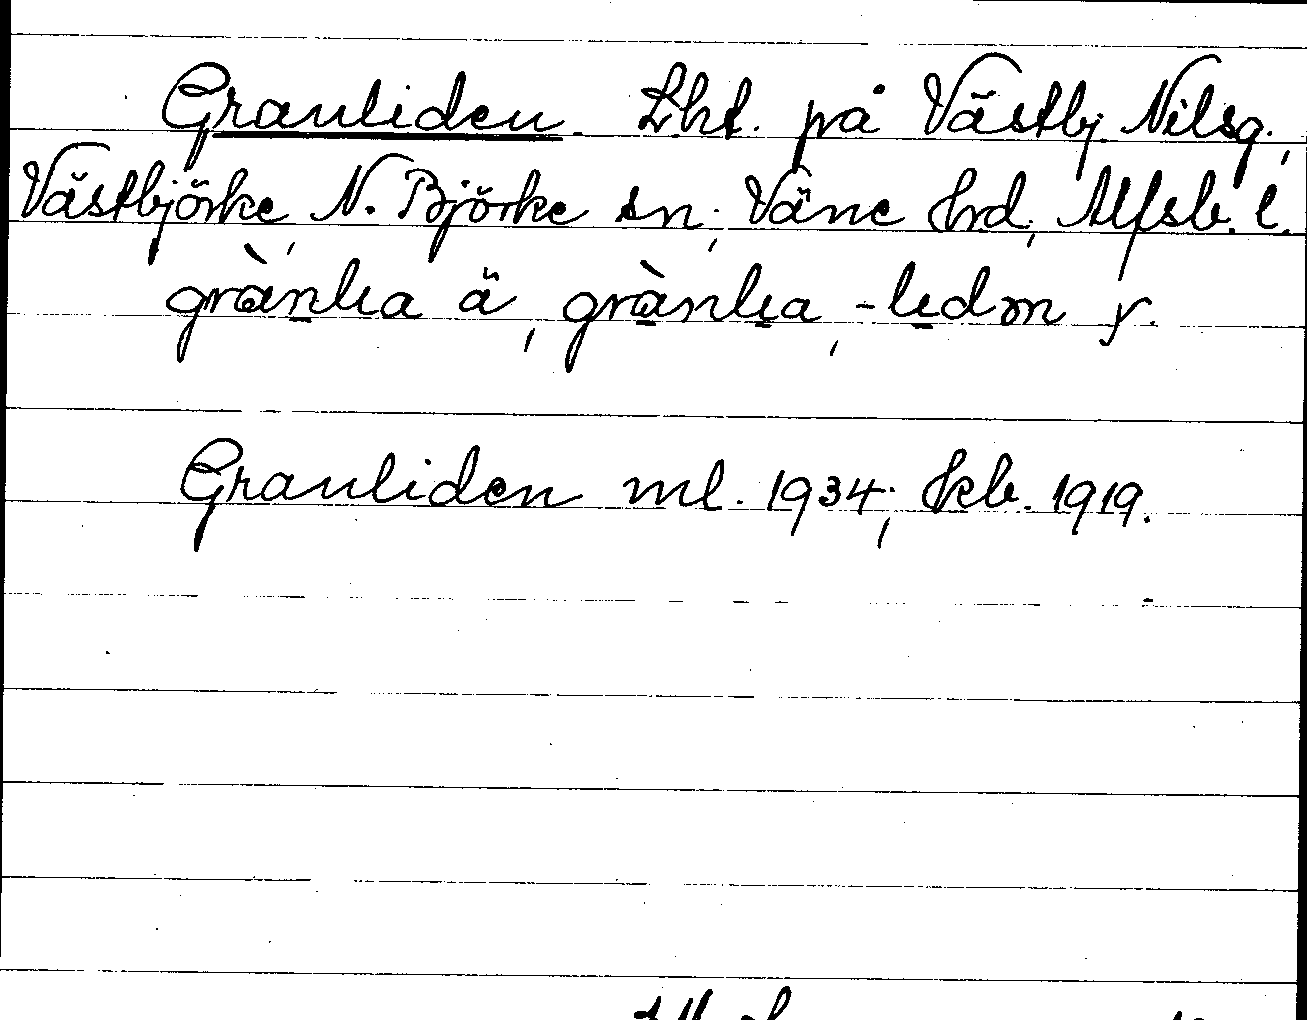 Granliden. Lht. på Västbj. Nilsg.,
Västbjörke, N. Björke sn, Väne hrd, Älfsb. l.
grànlia ä, grànlia, -lidn y.
Granliden ml. 1934; kb. 1919.